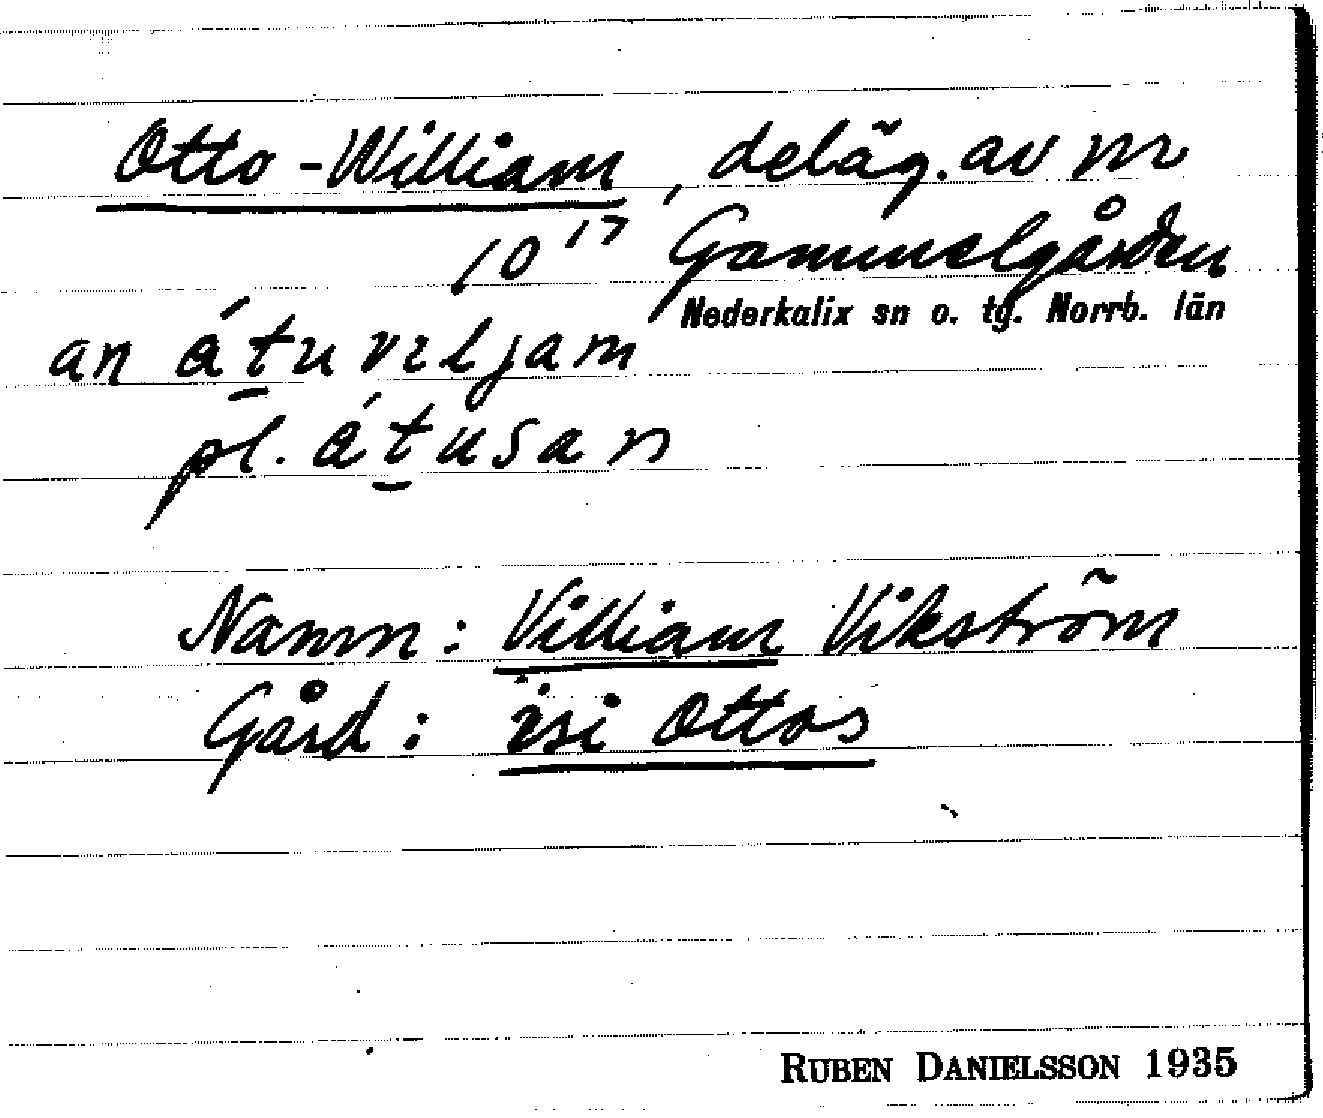 Otto-William, deläg. av nr
10¹⁷ Gammelgården
Nederkalix sn o. tg. Norrb. län
an átu vɪljam
pl. átusan
Namn: Villiam Vikström
Gård: isi Ottos
RUBEN DANIELSSON 1935